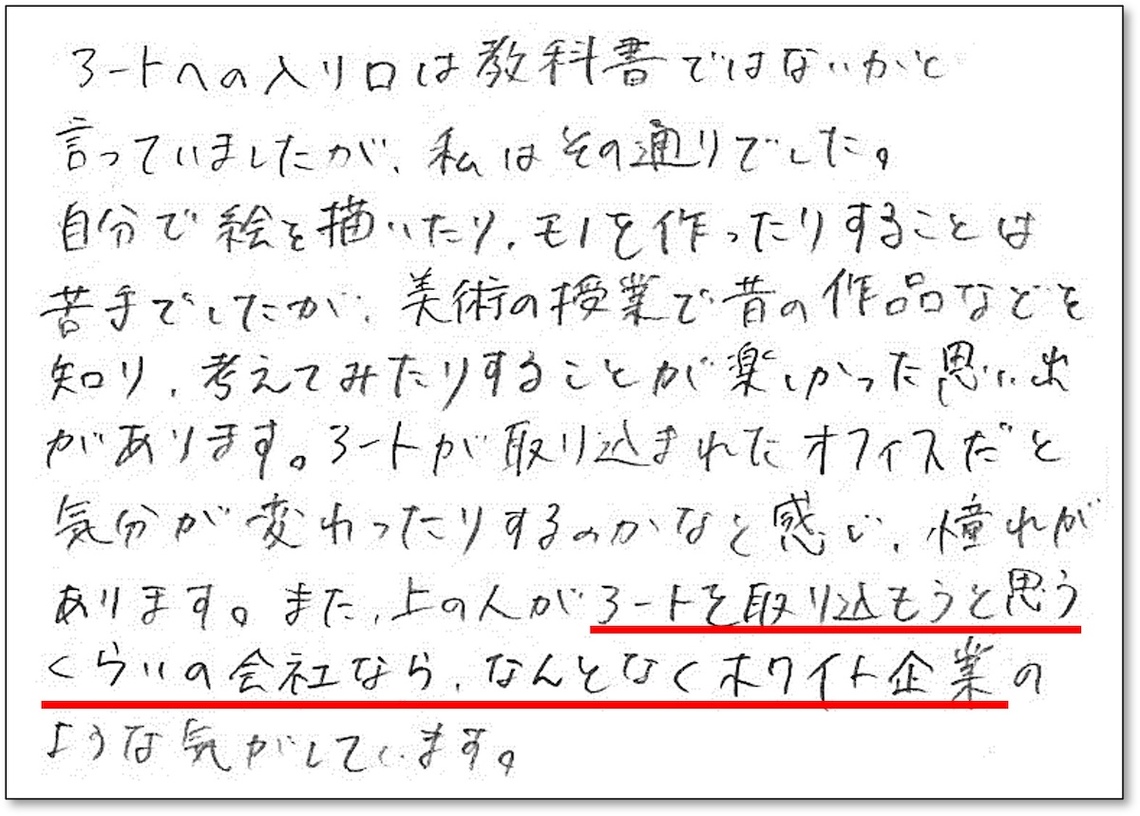 アートへの入り口は教科書ではないかと
言っていましたが、私はその通りでした。
自分で絵を描いたり、モノを作ったりすることは
苦手でしたが、美術の授業で昔の作品などを
知り、考えてみたりすることが楽しかった思い出
があります。アートが取り込まれたオフィスだと
気分が変わったりするのかなと感じ、憧れが
あります。また、上の人がアートを取り込もうと思う
くらいの会社なら、なんとなくホワイト企業の
ような気がしています。